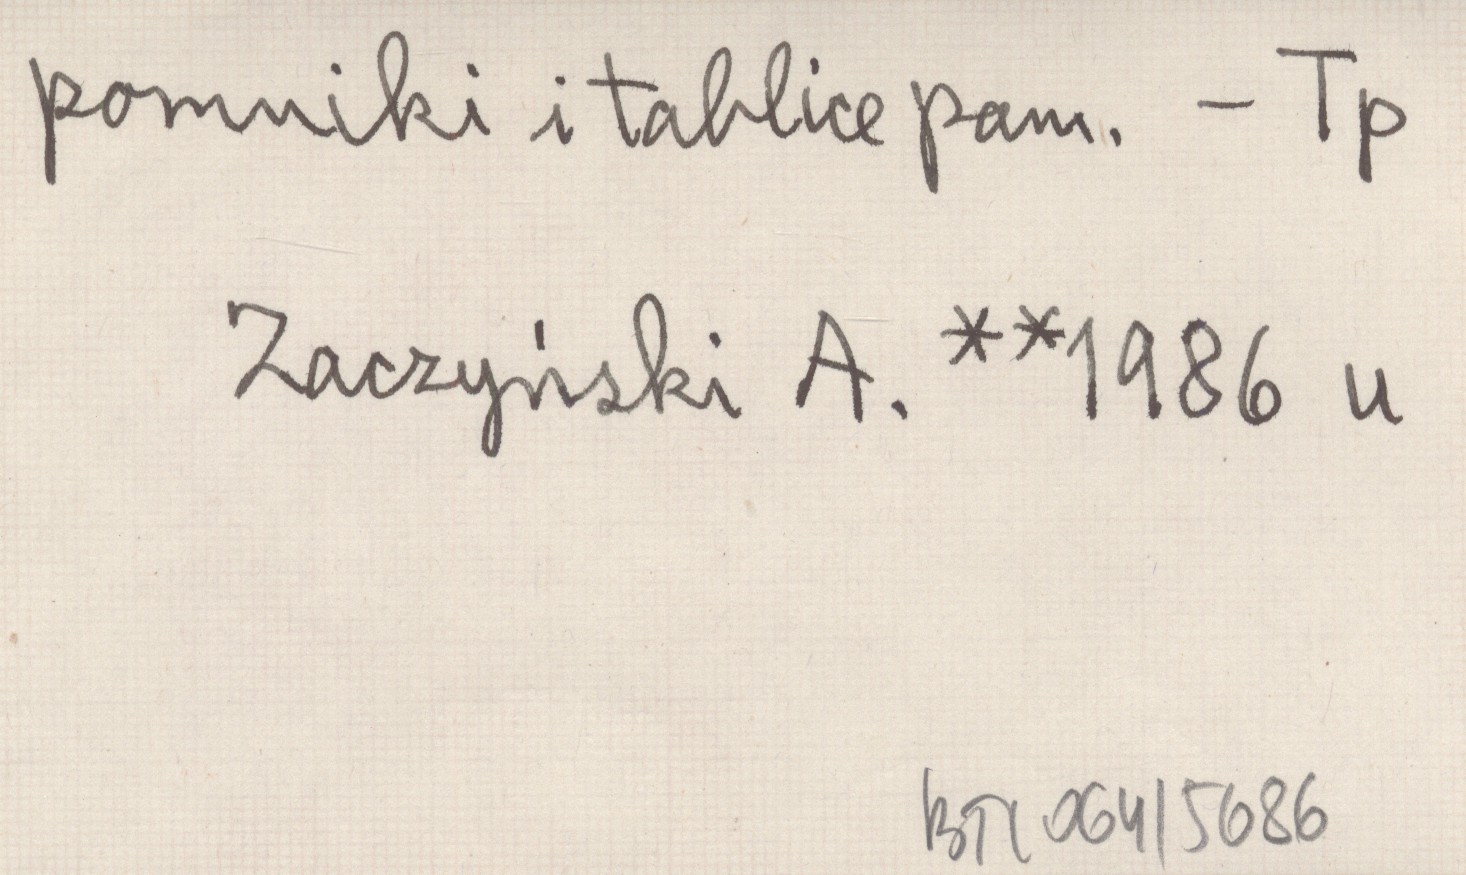 pomniki i tablice pam. - Tp
Zaczyński A. **1986 u
064/5686